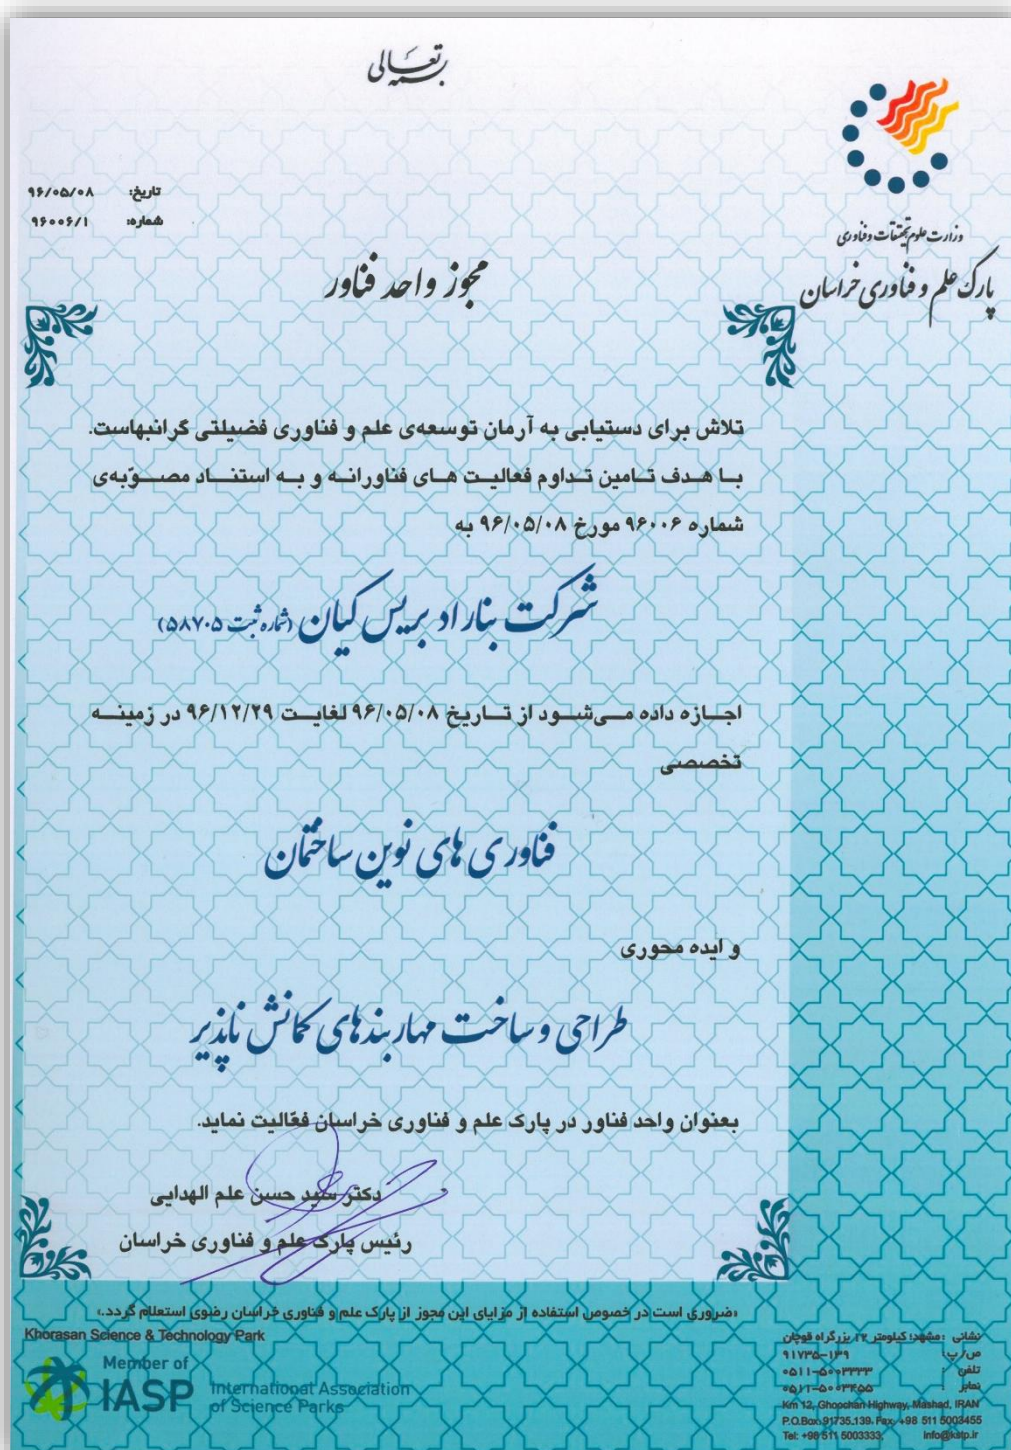 بسمه تعالی
تاریخ: ۹۶/۰۵/۰۸
شماره: ۹۶۰۰۶/۱
وزارت علوم تحقیقات و فناوری
پارک علم و فناوری خراسان
مجوز واحد فناور
تلاش برای دستیابی به آرمان توسعه‌ی علم و فناوری فضیلتی گرانبهاست.
بـا هـدف تـامین تـداوم فعالیت هـای فناورانـه و بـه استنـاد مصـوّبه‌ی
شماره ۹۶۰۰۶ مورخ ۹۶/۰۵/۰۸ به
شرکت بناراد بریس کیان (شماره ثبت ۵۸۷۰۵)
اجـازه داده مـی‌شـود از تـاریخ ۹۶/۰۵/۰۸ لغایـت ۹۶/۱۲/۲۹ در زمینـه
تخصصی
فناوری های نوین ساختمان
و ایده محوری
طراحی و ساخت مهاربندهای کمانش ناپذیر
بعنوان واحد فناور در پارک علم و فناوری خراسان فعّالیت نماید.
دکتر سید حسن علم الهدایی
رئیس پارک علم و فناوری خراسان
«ضروری است در خصوص استفاده از مزایای این مجوز از پارک علم و فناوری خراسان رضوی استعلام گردد.»
Khorasan Science & Technology Park
Member of
IASP International Association
of Science Parks
نشانی : مشهد؛ کیلومتر ۱۲ بزرگراه قوچان
ص/پ: ۹۱۷۳۵-۱۳۹
تلفن : ۰۵۱۱-۵۰۰۳۳۳۳
نمابر : ۰۵۱۱-۵۰۰۳۴۵۵
Km 12, Ghoochan Highway, Mashad, IRAN
P.O.Box: 91735.139. Fax: +98 511 5003455
Tel: +98 511 5003333, info@kstp.ir